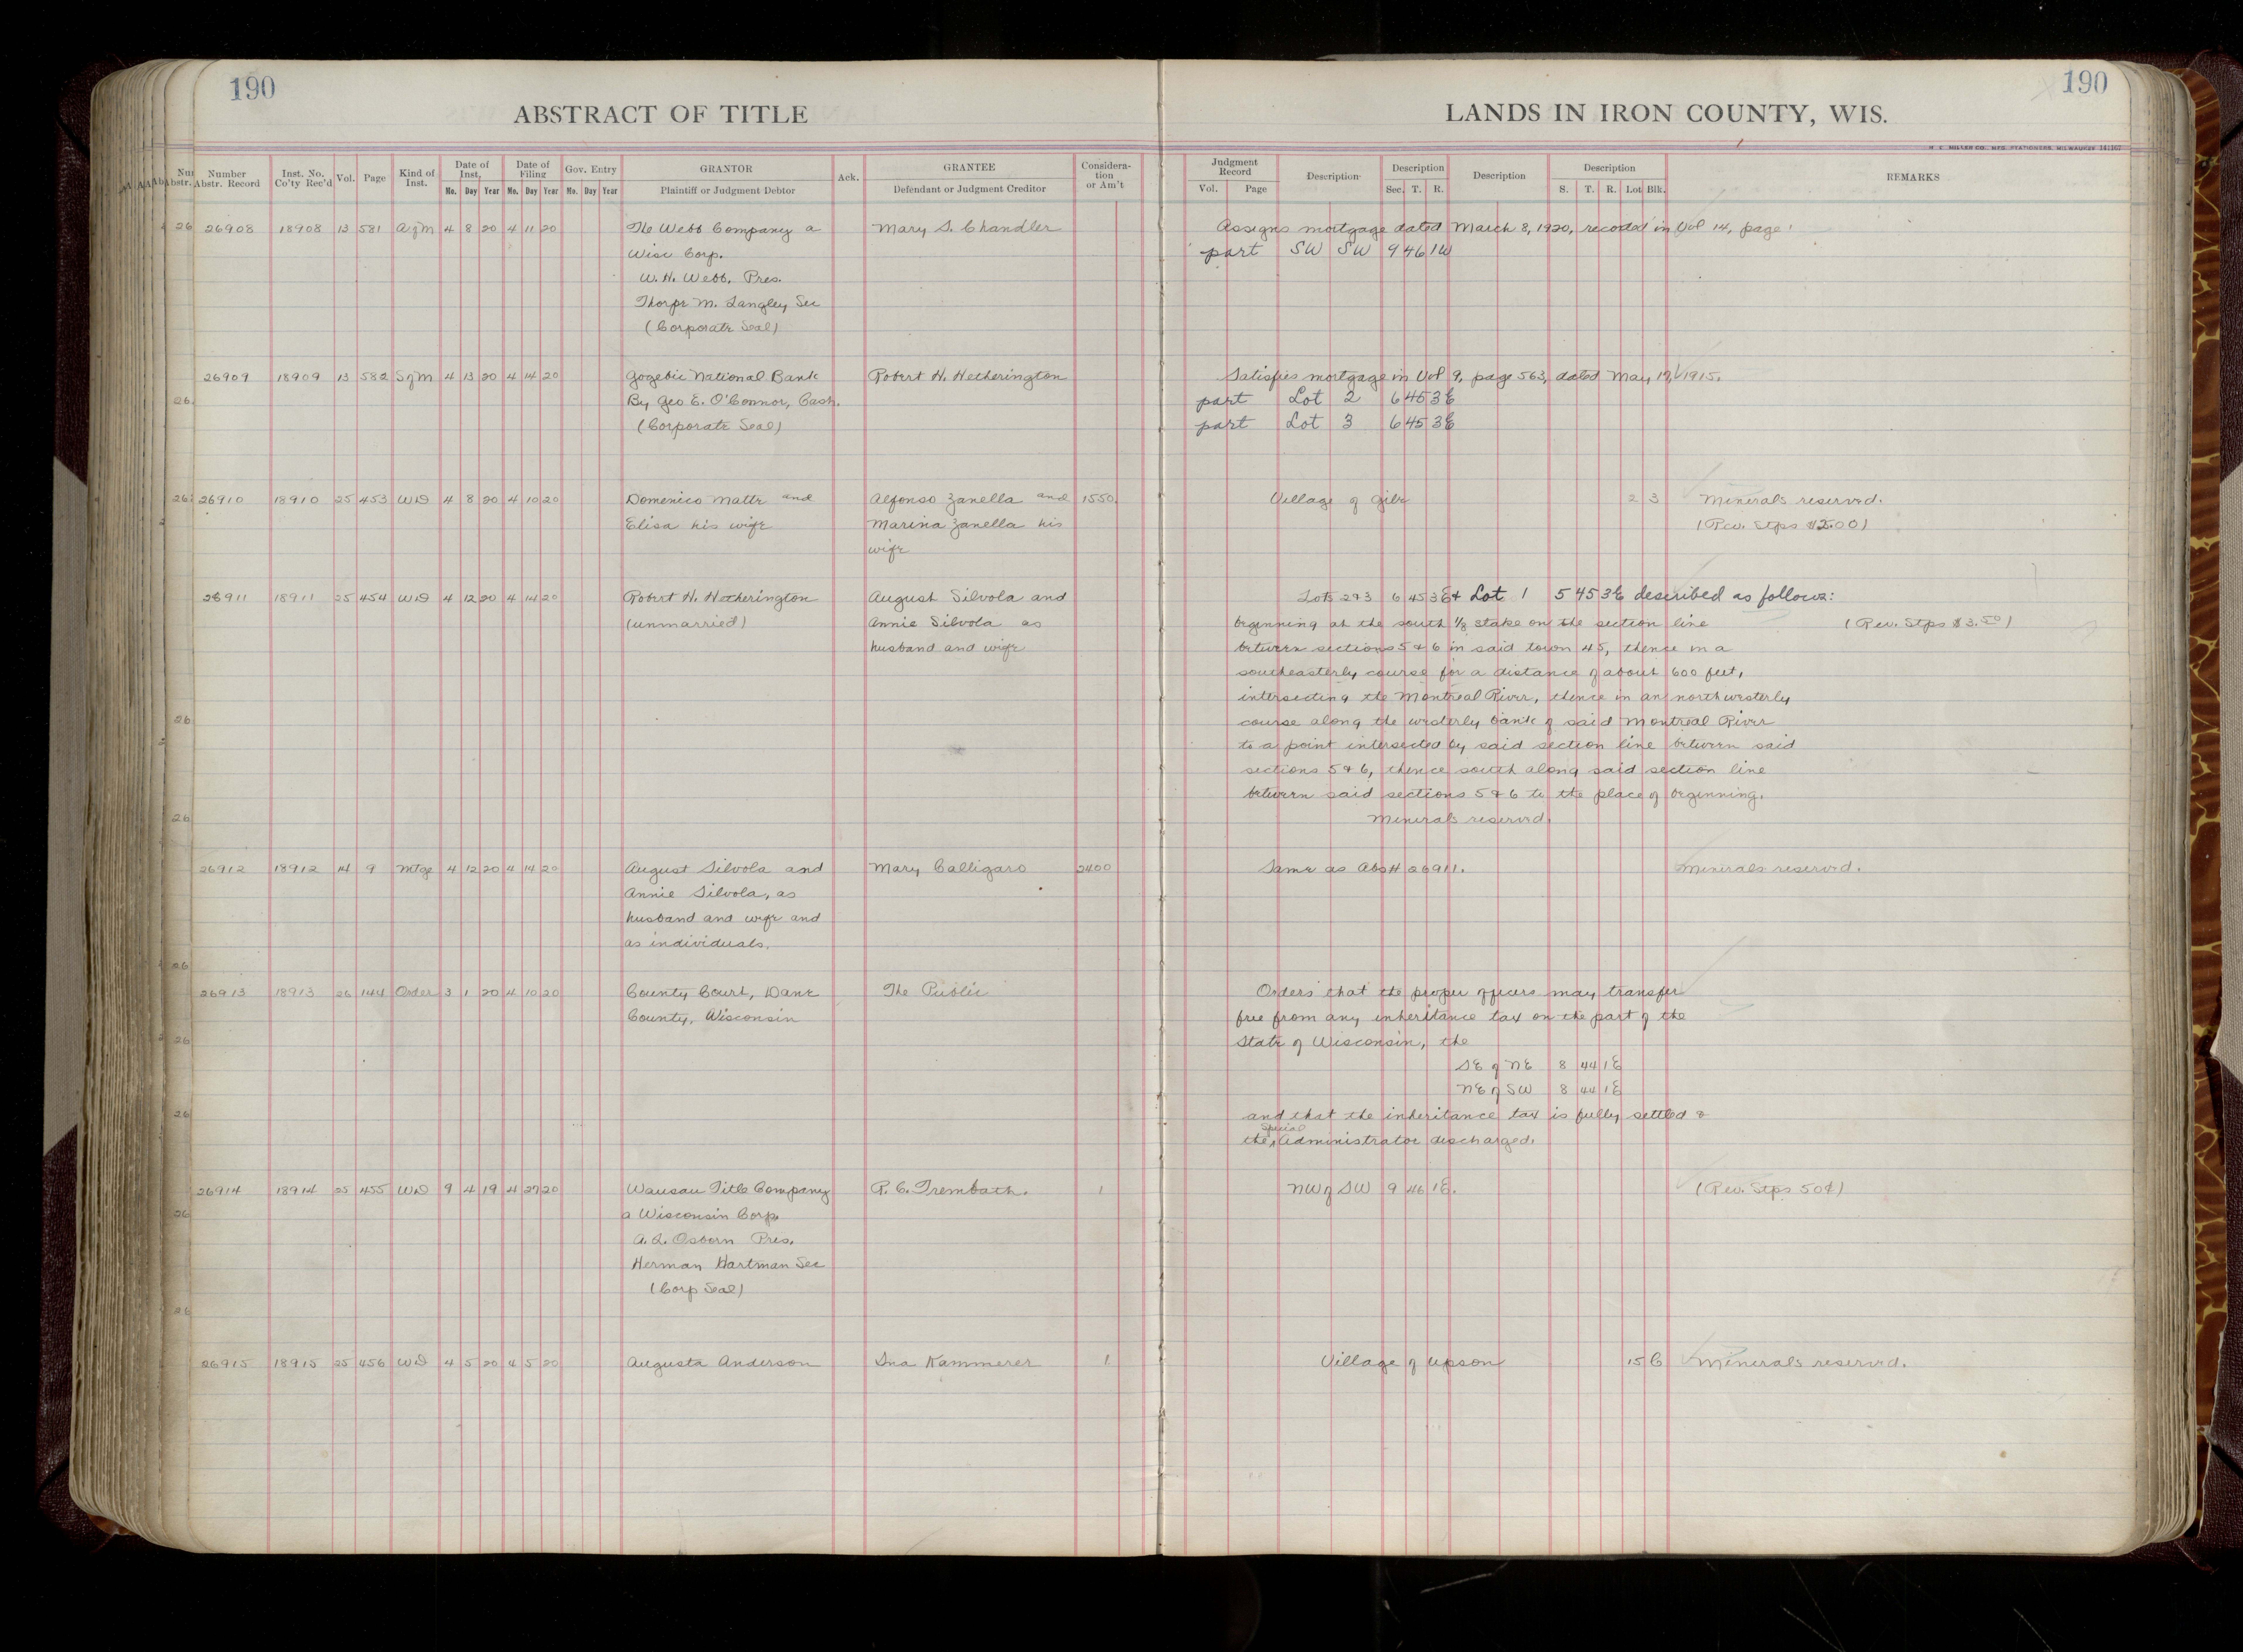 190
ABSTRACT OF TITLE
Number Abstr. Record
Inst. No. Co'ty Rec'd
Vol.
Page
Kind of Inst.
Date of Inst.
Mo. Day Year
Date of Filing
Mo. Day Year
Gov. Entry
Mo. Day Year
GRANTOR
Plaintiff or Judgment Debtor
Ack.
GRANTEE
Defendant or Judgment Creditor
Considera-tion or Am't
190
LANDS IN IRON COUNTY, WIS.
H. C. MILLER CO., MFG. STATIONERS, MILWAUKEE 141167
Judgment Record
Vol. Page
Description
Description
Sec. T. R.
Description
Description
S. T. R. Lot Blk.
REMARKS
26908 18908 13 581 AofM 4 8 20 4 11 20 The Webb Company a Mary S. Chandler Assigns mortgage dated March 8, 1920, recorded in Vol 14, page 1
Wisc Corp. part SW SW 9 46 1W
W. H. Webb, Pres.
Thorpe M. Langley Sec
(Corporate Seal)
26909 18909 13 582 SofM 4 13 20 4 14 20 Gogebic National Bank Robert H. Hetherington Satisfies mortgage in Vol 9, page 563, dated May 19, 1915.
By Geo E. O'Connor, Cash. part Lot 2 6 45 3E
(Corporate Seal) part Lot 3 6 45 3E
26910 18910 25 453 WD 4 8 20 4 10 20 Domenico Matte and Alfonso Zanella and 1550. Village of Gile 2 3 Minerals reserved.
Elisa his wife Marina Zanella his (Rev. Stps $2.00)
wife
26911 18911 25 454 WD 4 12 20 4 14 20 Robert H. Hetherington August Silvola and Lots 2&3 6 45 3E & Lot 1 5 45 3E described as follows:
(unmarried) Annie Silvola as beginning at the south 1/8 stake on the section line (Rev. Stps $3.50)
husband and wife between sections 5 & 6 in said town 45, thence in a
southeasterly course for a distance of about 600 feet,
intersecting the Montreal River, thence in an northwesterly
course along the westerly bank of said Montreal River
to a point intersected by said section line between said
sections 5 & 6, thence south along said section line
between said sections 5 & 6 to the place of beginning.
Minerals reserved.
26912 18912 14 9 Mtge 4 12 20 4 14 20 August Silvola and Mary Calligaro 2400 Same as Abs# 26911. Minerals reserved.
Annie Silvola, as
husband and wife and
as individuals.
26913 18913 26 144 Order 3 1 20 4 10 20 County Court, Dane The Public Orders that the proper officers may transfer
County, Wisconsin free from any inheritance tax on the part of the
State of Wisconsin, the
SE of NE 8 44 1E
NE of SW 8 44 1E
and that the inheritance tax is fully settled &
the special Administrator discharged.
26914 18914 25 455 WD 9 4 19 4 27 20 Wausau Title Company R. C. Trembath. 1 NW of SW 9 46 1E. (Rev. Stps 50¢)
a Wisconsin Corp.
A. L. Osborn Pres.
Herman Hartman Sec
(Corp Seal)
26915 18915 25 456 WD 4 5 20 4 5 20 Augusta Anderson Ina Kammerer 1 Village of Upson 15 6 Minerals reserved.